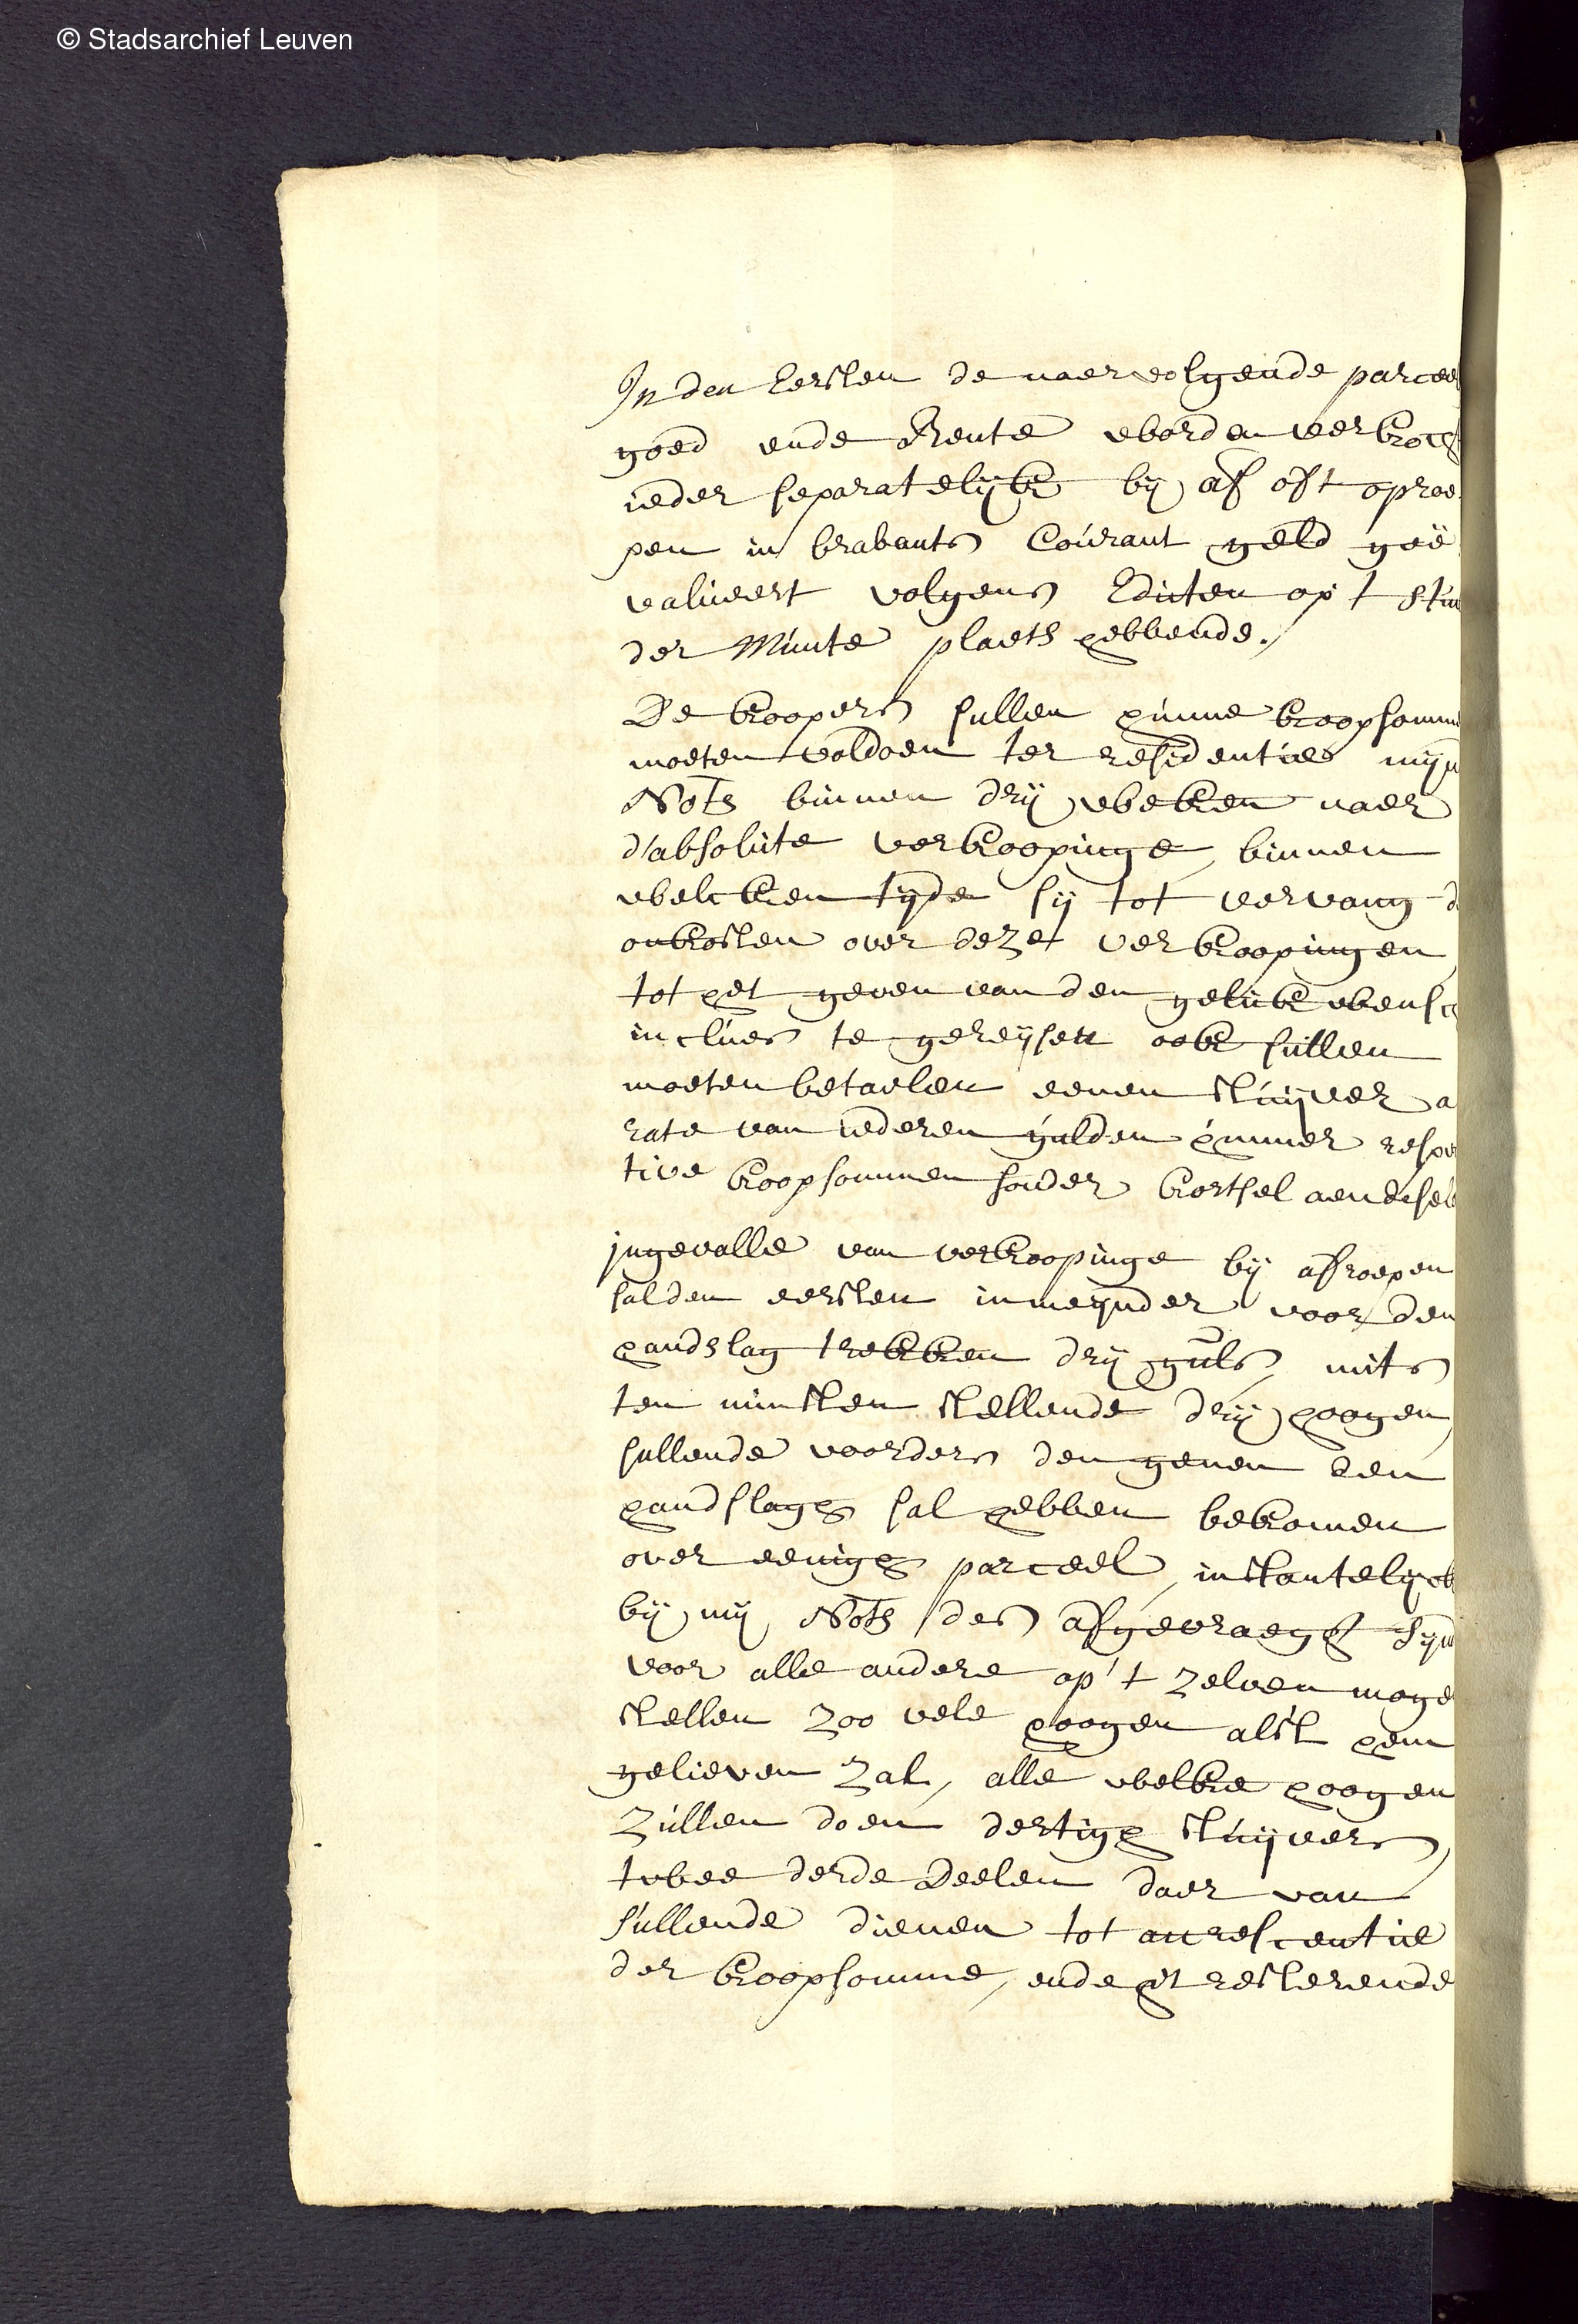 © Stadsarchief Leuven
In den Eersten de naervolgende parcee
goed ende Rente worden verkocg
ieder separatelijck bij af oft oproe
pen in brabants Courant geld geë
valueert volgens Edicten op 't stu
der Munte plaets hebbende.
De koopers sullen hunne koopsomm
moeten voldoen ter residentie mijn
Nots binnen drij weken naer
d'absolute verkoopinge, binnen
welcken tijde sij tot vervang d
onkosten over deze verkoopingen
tot het geven van den geluk wensch
inclues te gereijsen ook sullen
moeten betaelen eenen stuijver a
rate van iederen gulden hunner respec
tive koopsommen sonder korthsel aen de sel
ingevalle van verkoopinge bij afroepen
sal den eersten inmeijnder voor den
handslag trekken drij guls, mits
ten minsten stellende drij hoogen
sullende voorders den genen den
handslagh sal hebben bekomen
over eenigh parceel, instantelijck
bij mij Nots des afgevraegt sijn
voor alle andere op 't zelven moge
stellen zoo vele hoogen alst hem
gelieven zal, alle welke hoogen
zullen doen dertigh stuijvers
twee derde Deelen daer van
sullende dienen tot accrescentie
der koopsomme, ende het resterende